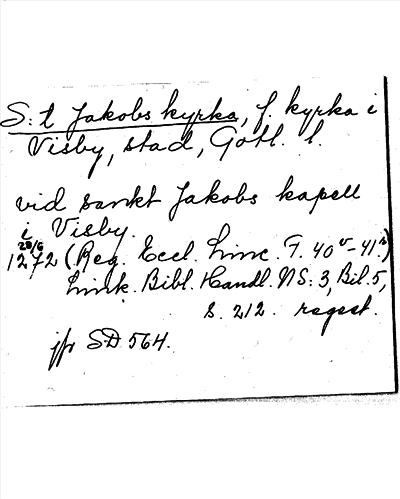 S:t Jakobs kyrka, f. kyrka i
Visby, stad, Gotl. l.
vid sankt Jakobs kapell
i Visby.
28/6
1272 (Reg. Eccl. Linc. F. 40v-41r)
Link. Bibl. Handl. NS: 3, Bil. 5,
s. 212. regest.
jfr SD 564.